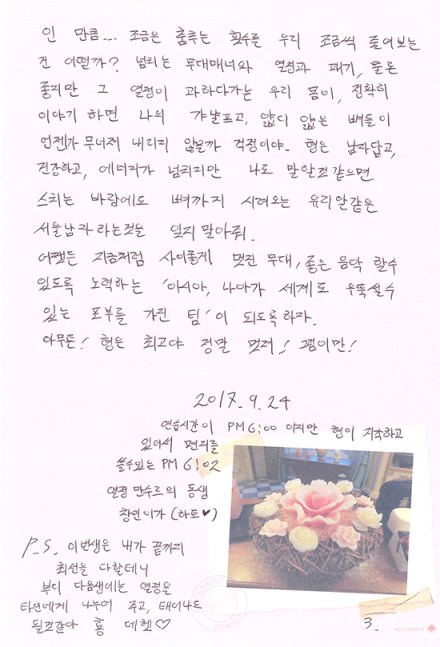 인 만큼... 조금은 춤추는 횟수를 우리 조금씩 줄여보는
건 어떨까? 넘치는 무대매너와 열정과 패기, 물론
좋지만 그 열정이 과하다가는 우리 몸이, 정확히
이야기 하면 나의 갸냘프고, 얇디 얇은 뼈들이
언젠가 무너져 내리지 않을까 걱정이야. 형은 남자답고,
건강하고, 에너지가 넘치지만 나로 말할것 같으면
스치는 바람에도 뼈까지 시려오는 유리알같은
서울남자라는것을 잊지 말아줘.
어쨌든 지금처럼 사이좋게 멋진 무대, 좋은 음악 할수
있도록 노력하는 '아시아, 나아가 세계로 우뚝설수
있는 포부를 가진 팀' 이 되도록하자.
아무튼! 형은 최고야 정말 멋져! 그럼이만!
2017. 9. 24
연습시간이 PM 6:00 이지만 형이 지각하고
있어서 편지를
쓸수있는 PM 6:02
열정 만수르의 동생
창민이가 (하트♥)
P.S. 이번생은 내가 끝까지
최선을 다할테니
부디 다음생에는 열정을
타인에게 나누어 주고, 태어나도
될것같아 홍 데헷♡
3.